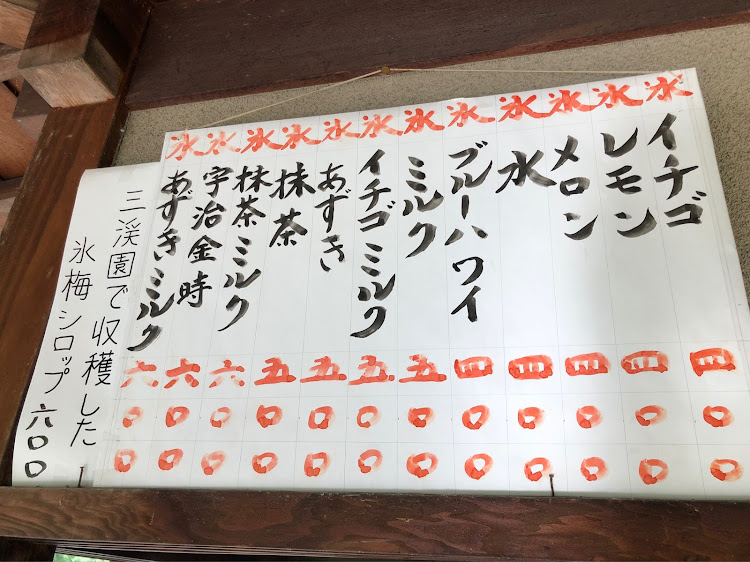 氷イチゴ四〇〇
氷レモン四〇〇
氷メロン四〇〇
氷水四〇〇
氷ブルーハワイ四〇〇
氷ミルク五〇〇
氷イチゴミルク五〇〇
氷あずき五〇〇
氷抹茶五〇〇
氷抹茶ミルク六〇〇
氷宇治金時六〇〇
氷あずきミルク六〇〇
三渓園で収穫した
氷梅シロップ六〇〇